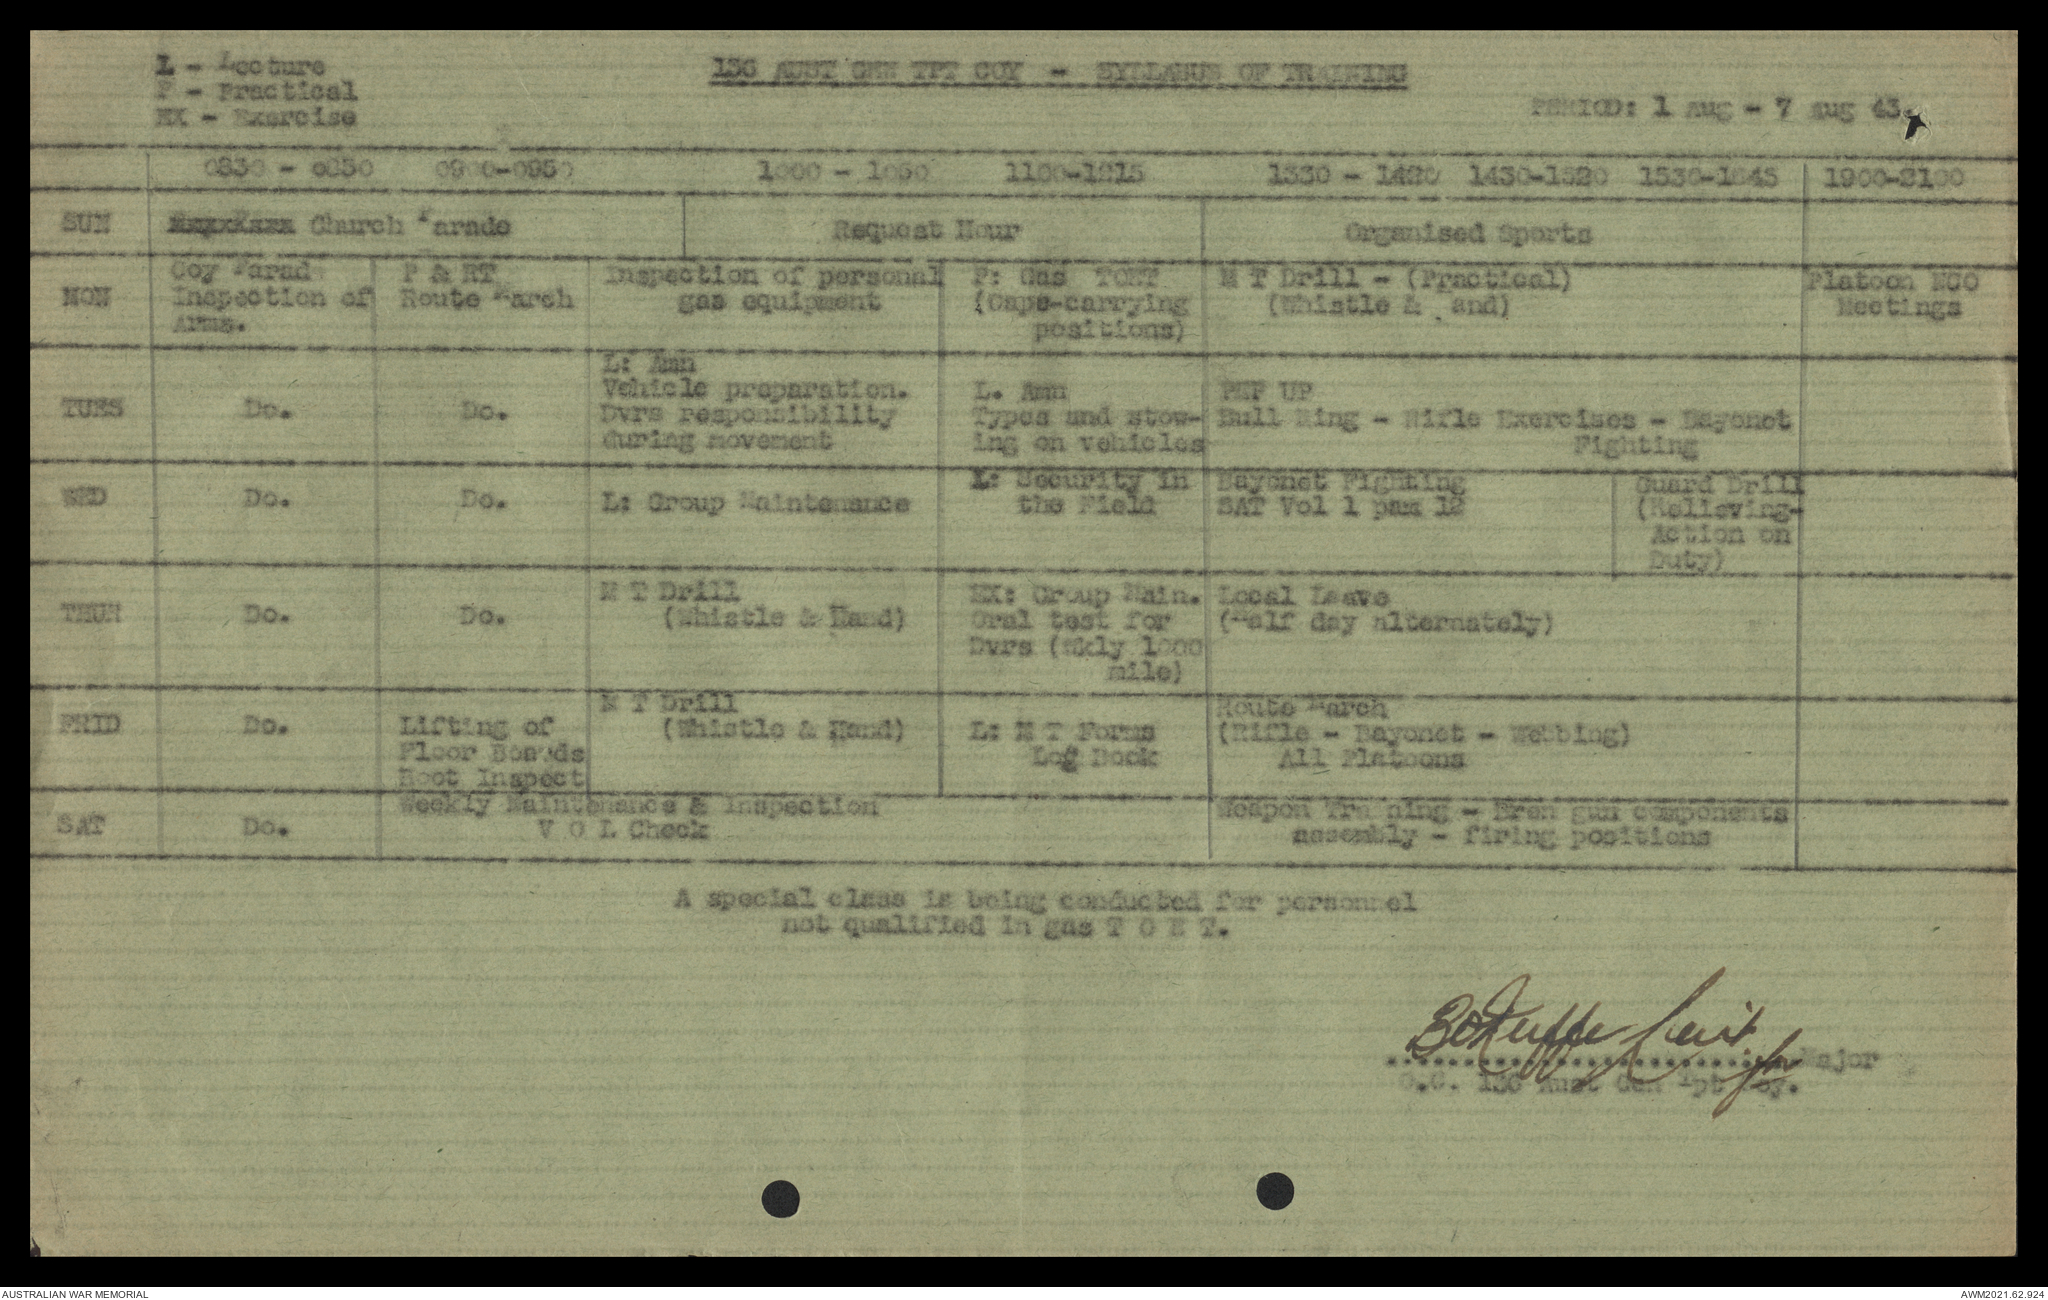 L - Lecture
P - Practical
EX - Exercise
136 AUST GEN TPT COY - SYLLABUS OF TRAINING
PERIOD: 1 Aug - 7 Aug 43.
0830 - 0850 0900-0950 1000 - 1050 1100-1215 1330 - 1420 1430-1520 1530-1645 1900-2100
SUN Church Parade Request Hour Organised Sports
MON
Coy Parad
Inspection of
Arms.
P & RT
Route March
Inspection of personal
gas equipment
P: Gas TOET
(Cape-carrying
positions)
M T Drill - (Practical)
(Whistle & and)
Platoon NCO
Meetings
TUES
Do.
Do.
L: Amn
Vehicle preparation.
Dvrs responsibility
during movement
L. Amn
Types and stow-
ing on vehicles
PEF UP
Bull Ring - Rifle Exercises - Bayonet
Fighting
WED
Do.
Do.
L: Group Maintenance
L: Security in
the Field
Bayonet Fighting
SAT Vol 1 pam 12
Guard Drill
(Relieving-
Action on
Duty)
THUR
Do.
Do.
M T Drill
(Whistle & Hand)
EX: Group Main.
Oral test for
Dvrs (Wkly 1000
mile)
Local Leave
(Half day alternately)
FRID
Do.
Lifting of
Floor Boards
Foot Inspect
M T Drill
(Whistle & Hand)
L: M T Forms
Log Book
Route March
(Rifle - Bayonet - Webbing)
All Platoons
SAT
Do.
Weekly Maintenance & Inspection
V O L Check
Weapon Tra ning - Bren gun components
assembly - firing positions
A special class is being conducted for personnel
not qualified in gas T O E T.
Major
O.C. 136 Aust Gen Tpt Coy.
AUSTRALIAN WAR MEMORIAL
AWM2021.62.924